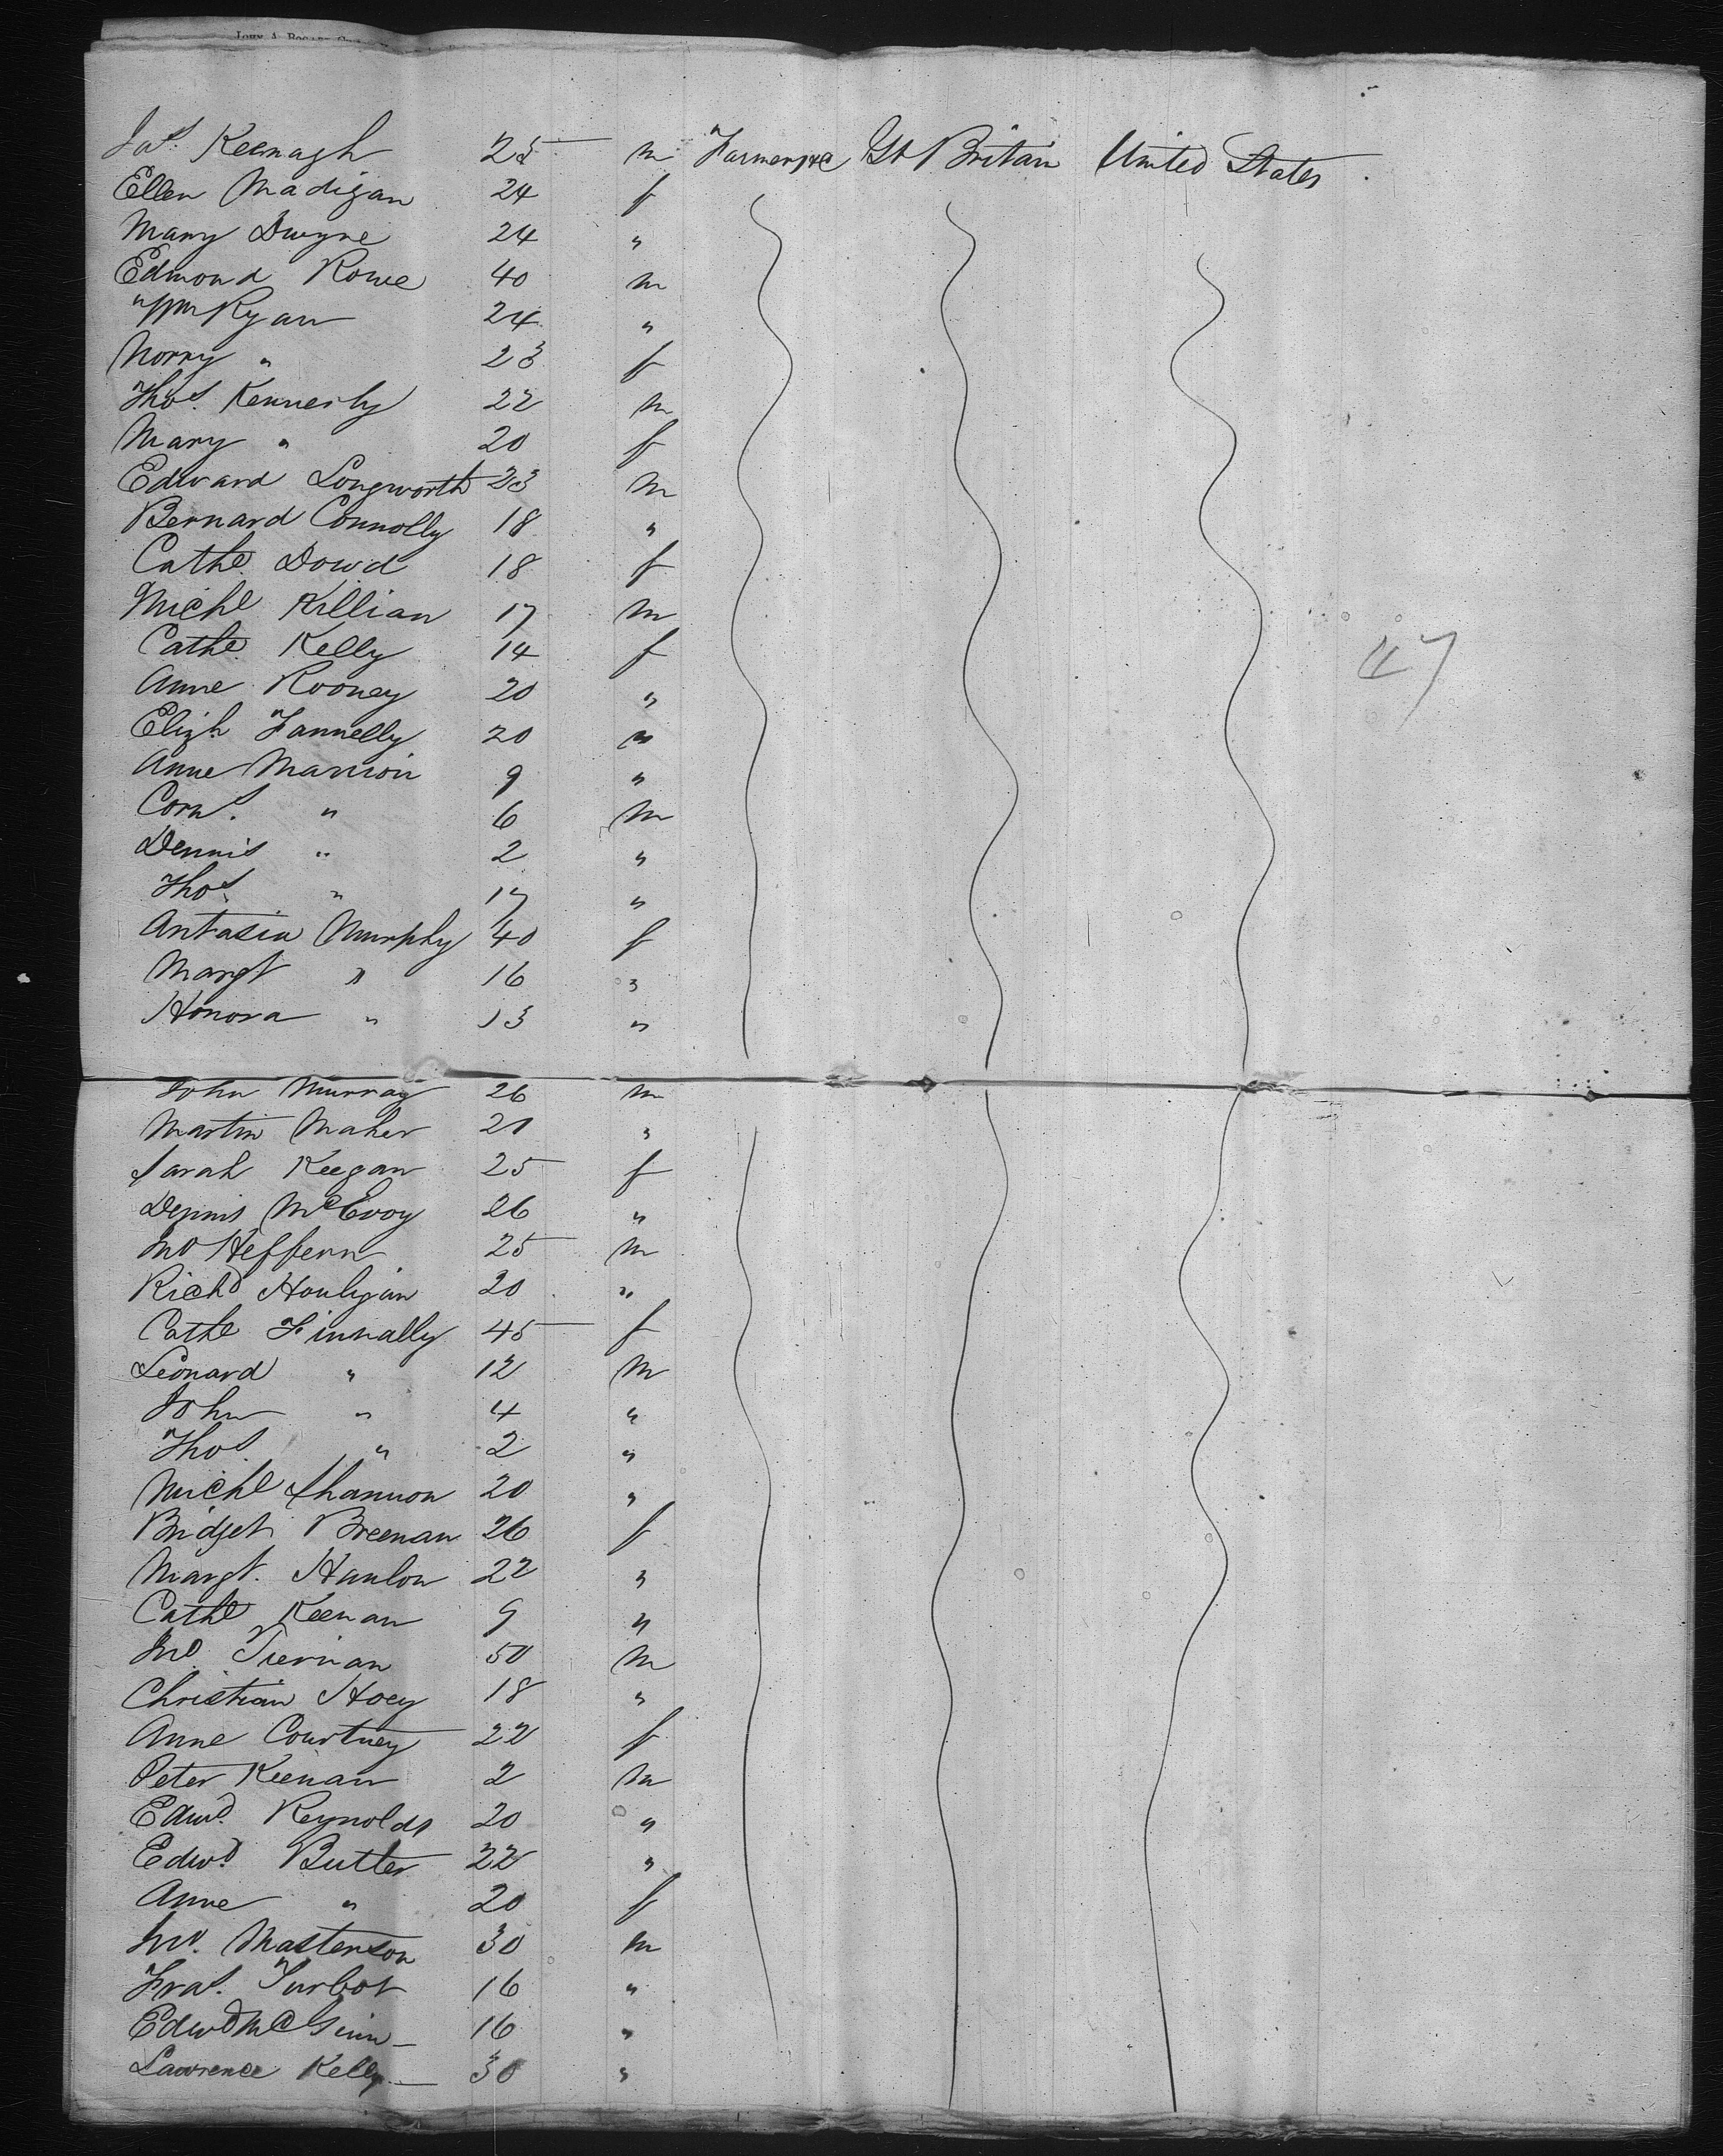 Jas. Keenagh 25 m Farmers &c Gt Britain United States
Ellen Madigan 24 f
Mary Dwyre 24 "
Edmond Rowe 40 m
Wm Ryan 24 "
Norry " 23 f
Thos. Kennerly 22 m
Mary " 20 f
Edward Longworth 23 m
Bernard Connolly 18 "
Cathe Dowd 18 f
Michl Killian 17 m
Cathe Kelly 14 f
Anne Rooney 20 "
Elizh Fannelly 20 "
Anne Marrion 9 "
Corns. " 6 m
Dennis " 2 "
Thos. " 17 "
Antasia Murphy 40 f
Margt " 16 "
Honora " 13 "
John Murray 26 m
Martin Maher 20 "
Sarah Keegan 25 f
Dennis McEvoy 26 "
Jno Heffern 25 m
Richd Houligan 20 "
Cathe Finnally 45 f
Leonard " 12 m
John " 4 "
Thos. " 2 "
Michl Shannon 20 "
Bridget Breenan 26 f
Margt. Hanlon 22 "
Cathe Keenan 9 "
Jno. Tiernan 50 m
Christian Hoey 18 "
Anne Courtney 22 f
Peter Keenan 2 m
Edwd. Reynolds 20 "
Edwd. Butler 22 "
Anne " 20 f
Jno. Masterson 30 m
Fras. Turbot 16 "
Edwd McGinn 16 "
Lawrence Kelly 30 "
47